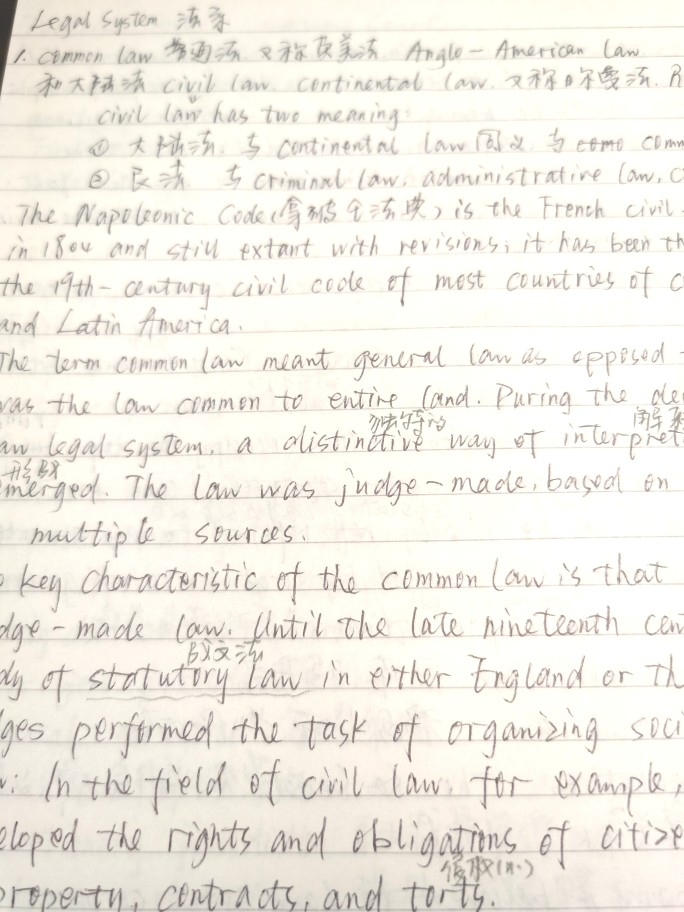 Legal System 法系
1. Common law 普通法 又称英美法 Anglo-American law
和大陆法 civil law. continental law. 又称日尔曼法. R
civil law has two meaning:
① 大陆法. 与 continental law 同义 与 comm
② 民法 与 criminal law. administrative law, c
The Napoleonic Code (拿破仑法典) is the French civil
in 1804 and still extant with revisions; it has been th
the 19th-century civil code of most countries of c
and Latin America.
The term common law meant general law as opposed
was the law common to entire land. During the de
独特的
aw legal system, a distinctive way of interpret
形成
emerged. The law was judge-made, based on
multiple sources.
key characteristic of the common law is that
dge-made law. Until the late nineteenth cen
成文法
dy of statutory law in either England or th
ges performed the task of organizing soci
: In the field of civil law, for example,
eloped the rights and obligations of citize
侵权(n.)
property, contracts, and torts.